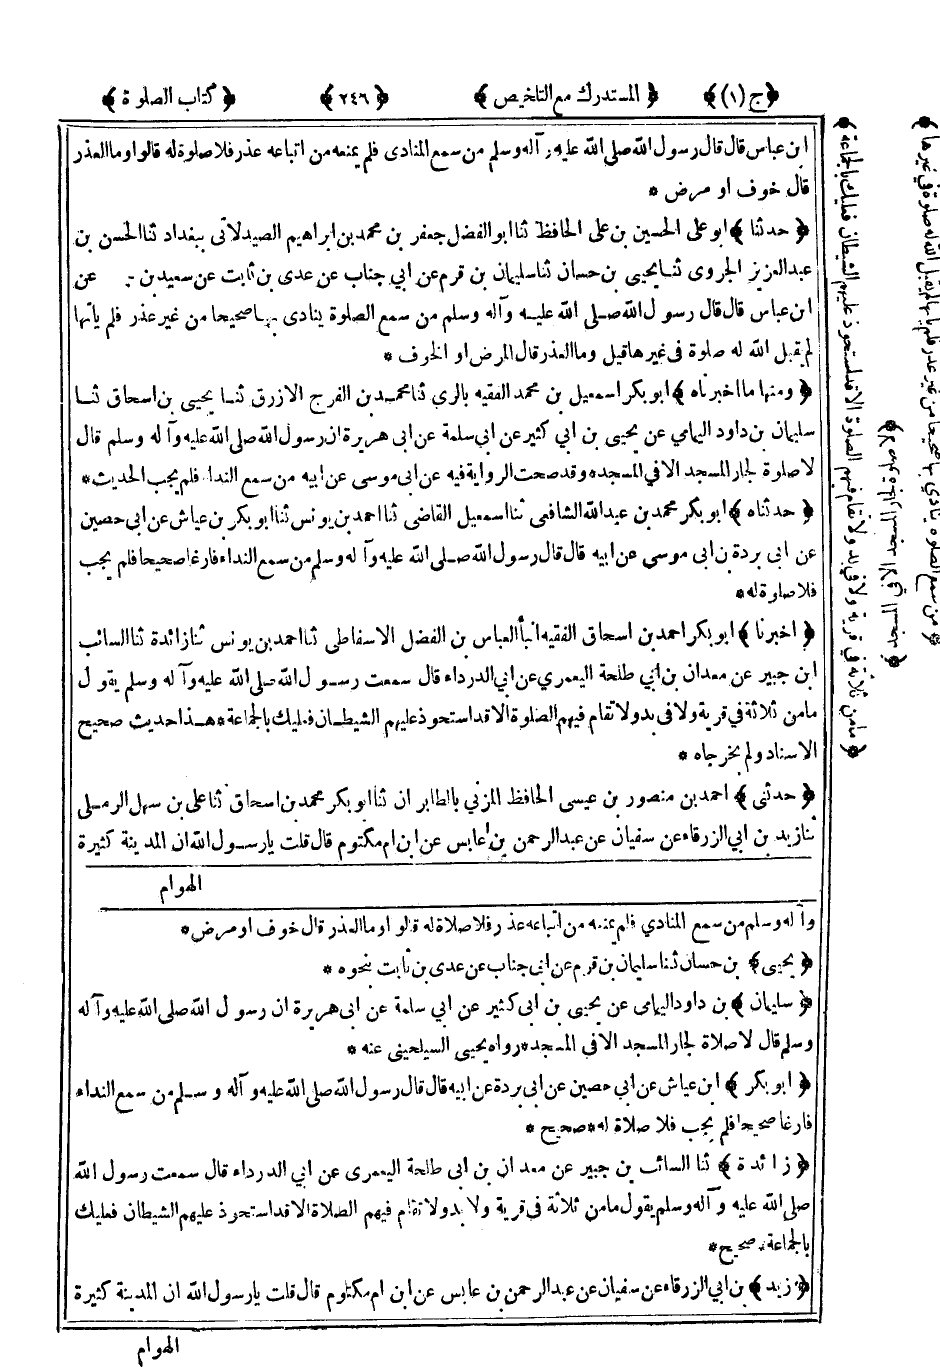 ﴿ج (١)﴾ ﴿المستدرك مع التلخيص﴾ ﴿٢٤٦﴾ ﴿كتاب الصلوة﴾
ابن عباس قال قال رسول الله صلى الله عليه وآله وسلم من سمع المنادى فلم يمنعه من اتباعه عذر فلا صلوة له قالوا وما العذر
قال خوف او مرض *
﴿حدثنا﴾ ابو على الحسين بن على الحافظ ثنا ابو الفضل جعفر بن محمد بن ابراهيم الصيدلانى ببغداد ثنا الحسن بن
عبد العزيز الجروى ثنا يحيى بن حسان ثنا سليمان بن قرم عن ابي جناب عن عدى بن ثابت عن سعيد بن عن
ابن عباس قال قال رسول الله صلى الله عليه وآله وسلم من سمع الصلوة ينادى بها صحيحا من غير عذر فلم يأتها
لم يقبل الله له صلوة فى غيرها قيل وما العذر قال المرض او الخوف *
﴿ومنها ما اخبرناه﴾ ابو بكر اسمعيل بن محمد الفقيه بالري ثنا محمد بن الفرج الازرق ثنا يحيى بن اسحاق ثنا
سليمان بن داود اليمامي عن يحيى بن ابي كثير عن ابي سلمة عن ابى هريرة ان رسول الله صلى الله عليه وآله وسلم قال
لا صلوة لجار المسجد الا في المسجد * وقد صحت الرواية فيه عن ابى موسى عن ابيه من سمع النداء فلم يجب الحديث *
﴿حدثناه﴾ ابو بكر محمد بن عبد الله الشافعى ثنا اسمعيل القاضى ثنا احمد بن يونس ثنا ابو بكر بن عياش عن ابى حصين
عن ابى بردة بن ابى موسى عن ابيه قال قال رسول الله صلى الله عليه وآله وسلم من سمع النداء فارغا صحيحا فلم يجب
فلا صلوة له *
﴿اخبرنا﴾ ابو بكر احمد بن اسحاق الفقيه انبأ العباس بن الفضل الاسفاطى ثنا احمد بن يونس ثنا زائدة ثنا السائب
ابن جبير عن معدان بن ابي طلحة اليعمري عن ابي الدرداء قال سمعت رسول الله صلى الله عليه وآله وسلم يقول
ما من ثلاثة في قرية ولا فى بدو لا تقام فيهم الصلوة الا قد استحوذ عليهم الشيطان فعليك بالجماعة * هذا حديث صحيح
الاسناد ولم يخرجاه *
﴿حدثنى﴾ احمد بن منصور بن عيسى الحافظ المزني بالطابران ثنا ابو بكر محمد بن اسحاق ثنا على بن سهل الرملى
ثنا زيد بن ابي الزرقاء عن سفيان عن عبد الرحمن بن عابس عن ابن ام مكتوم قال قلت يا رسول الله ان المدينة كثيرة
الهوام
وآله وسلم من سمع المنادي فلم يمنعه من اتباعه عذر فلا صلاة له قالوا وما العذر قال خوف او مرض *
﴿يحيى﴾ بن حسان ثنا سليمان بن قرم عن ابى جناب عن عدى بن ثابت بنحوه *
﴿سليمان﴾ بن داود اليمامى عن يحيى بن ابى كثير عن ابي سلمة عن ابى هريرة ان رسول الله صلى الله عليه وآله
وسلم قال لا صلاة لجار المسجد الا في المسجد * رواه يحيى السيلحينى عنه *
﴿ابو بكر﴾ ابن عياش عن ابي حصين عن ابى بردة عن ابيه قال قال رسول الله صلى الله عليه وآله وسلم من سمع النداء
فارغا صحيحا فلم يجب فلا صلاة له * صحيح *
﴿زائدة﴾ ثنا السائب بن جبير عن معدان بن ابى طلحة اليعمرى عن ابي الدرداء قال سمعت رسول الله
صلى الله عليه وآله وسلم يقول ما من ثلاثة في قرية ولا بدو لا تقام فيهم الصلاة الا قد استحوذ عليهم الشيطان فعليك
بالجماعة * صحيح *
﴿زيد﴾ بن ابي الزرقاء عن سفيان عن عبد الرحمن بن عابس عن ابن ام مكتوم قال قلت يا رسول الله ان المدينة كثيرة
الهوام
﴿ما من ثلثة في قرية ولا في بدو لا تقام فيهم الصلوة الا قد استحوذ عليهم الشيطان فعليك بالجماعة﴾
﴿من سمع الصلوة ينادي بها صحيحا من غير عذر فلم يأتها لم يقبل الله له صلوة في غيرها﴾